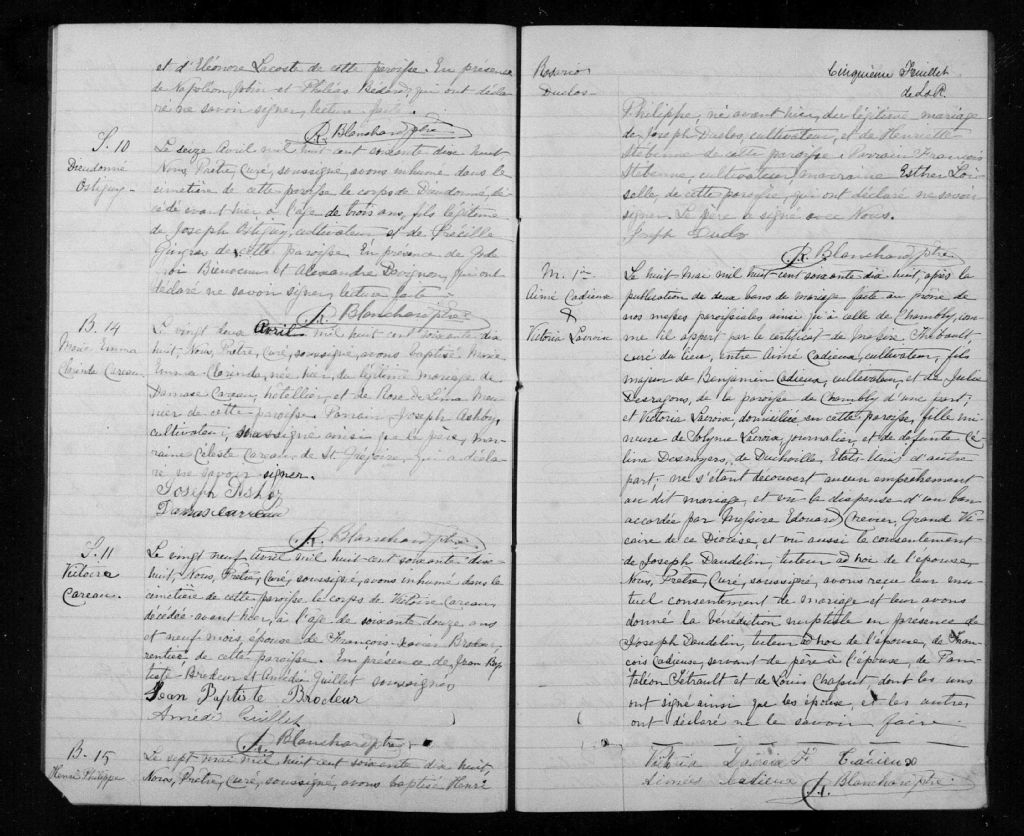 et d'Eléonore Lacoste de cette paroisse. En présence
de Napoléon Jobin et Philéas Bedard qui ont décla-
ré ne savoir signer, lecture faite.
Blanchard ptre
S. 10
Dieudonné
Ostiguy
Le seize Avril mil huit cent soixante dix huit
Nous, Prêtre, Curé, soussigné, avons inhumé dans le
cimetière de cette paroisse le corps de Dieudonné, dé-
cédé avant hier à l'âge de trois ans, fils légitime
de Joseph Ostiguy, cultivateur et de
Gingras de cette paroisse. En présence de
Bienvenu et Alexandre qui ont
déclaré ne savoir signer, lecture faite
Blanchard ptre
B. 14
Marie Emma
Clorinda Careau
Le vingt deux Avril mil huit cent soixante dix
huit, Nous, Prêtre, Curé, soussigné, avons baptisé Marie
Emma Clorinda, née hier, du légitime mariage de
Damase Careau, hotellier, et de Rose de Lima Meu-
nier de cette paroisse Parrain, Joseph
cultivateur, soussigné ainsi que le père, mar-
raine Céleste Careau, de St Grégoire, qui a décla-
ré ne savoir signer.
Joseph
Damas careau
Blanchard ptre
S. 11
Victoire
Careau.
Le vingt neuf avril mil huit-cent soixante dix-
huit, Nous, Prêtre, Curé, soussigné, avons inhumé dans le
cimetière de cette paroisse le corps de Victoire Careau,
décédée avant hier, à l'âge de soixante douze ans
et neuf mois, épouse de François-Xavier Brodeur,
rentier de cette paroisse. En présence de Jean Bap-
tiste Brodeur et Amédée Guillet soussignés
Jean Baptiste Brodeur
Amédé Guillet
Blanchard ptre
B. 15
Henri Philippe
Le sept mai mil huit cent soixante dix huit,
Nous, Prêtre, Curé, soussigné, avons baptisé Henri
Rosario
Duclos
Cinquième Feuillet
Philippe, né avant hier, du légitime mariage
de Joseph Duclos, cultivateur, et de Henriette
Stebenne de cette paroisse: Parrain François
Stebenne, cultivateur, marraine Esther Loi-
selle, de cette paroisse, qui ont déclaré ne savoir
signer. Le père a signé avec Nous.
Joseph Duclo
Blanchard ptre
M. 1er
Aimé Cadieux
&
Victoria Lacroix
Le huit Mai mil huit-cent soixante-dix huit, après la
publication de deux bans de mariage faite au prône de
nos messes paroissiales ainsi qu'à celle de Chambly, com-
me il appert par le certificat de Messire Thibault,
curé du lieu, entre Aimé Cadieux, cultivateur, fils
majeur de Benjamin Cadieux, cultivateur, et de Julie
Desragons, de la paroisse de Chambly d'une part;
et Victoria Lacroix, domiciliée en cette paroisse, fille mi-
neure de Lacroix, journalier, et de défunte Cé-
lina Desnoyers, de Etats-Unis d'autre
part; ne s'étant découvert aucun empêchement
au dit mariage, et vu la dispense d'un ban
accordée par Messire Edouard Crevier, Grand Vi-
caire de ce Diocèse, et vu aussi le consentement
de Joseph Daudelin, tuteur ad hoc de l'épouse,
Nous, Prêtre, Curé, soussigné, avons reçu leur mu-
tuel consentement de mariage et leur avons
donné la bénédiction nuptiale en présence de
Joseph Daudelin, tuteur ad hoc de l'épouse, de Fran-
çois Cadieux, servant de père à l'épouse, de Pan-
taléon Tétrault et de Louis Chaput dont les uns
ont signé ainsi que les épouse, et les autres
ont déclaré ne le savoir faire.
Victoria Lacroix Cadieux
Aimée Cadieux
Blanchard ptre